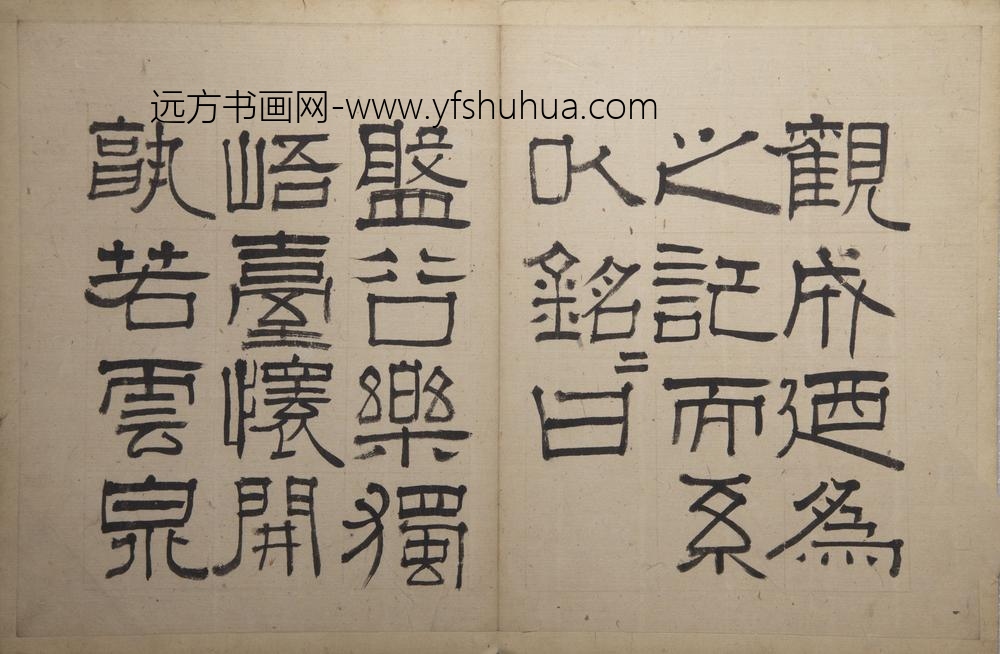 远方书画网-www.yfshuhua.com
觀成廼爲
之記而系
㕥銘〻曰
盤谷樂獨
峿臺懷開
孰若雲泉